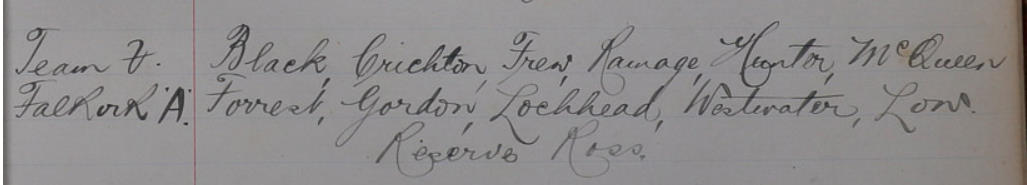 Team v. Black, Crichton, Frew, Ramage, Hunter, McQueen
Falkirk 'A'. Forrest, Gordon, Lochhead, Westwater, Low.
Reserve Ross.